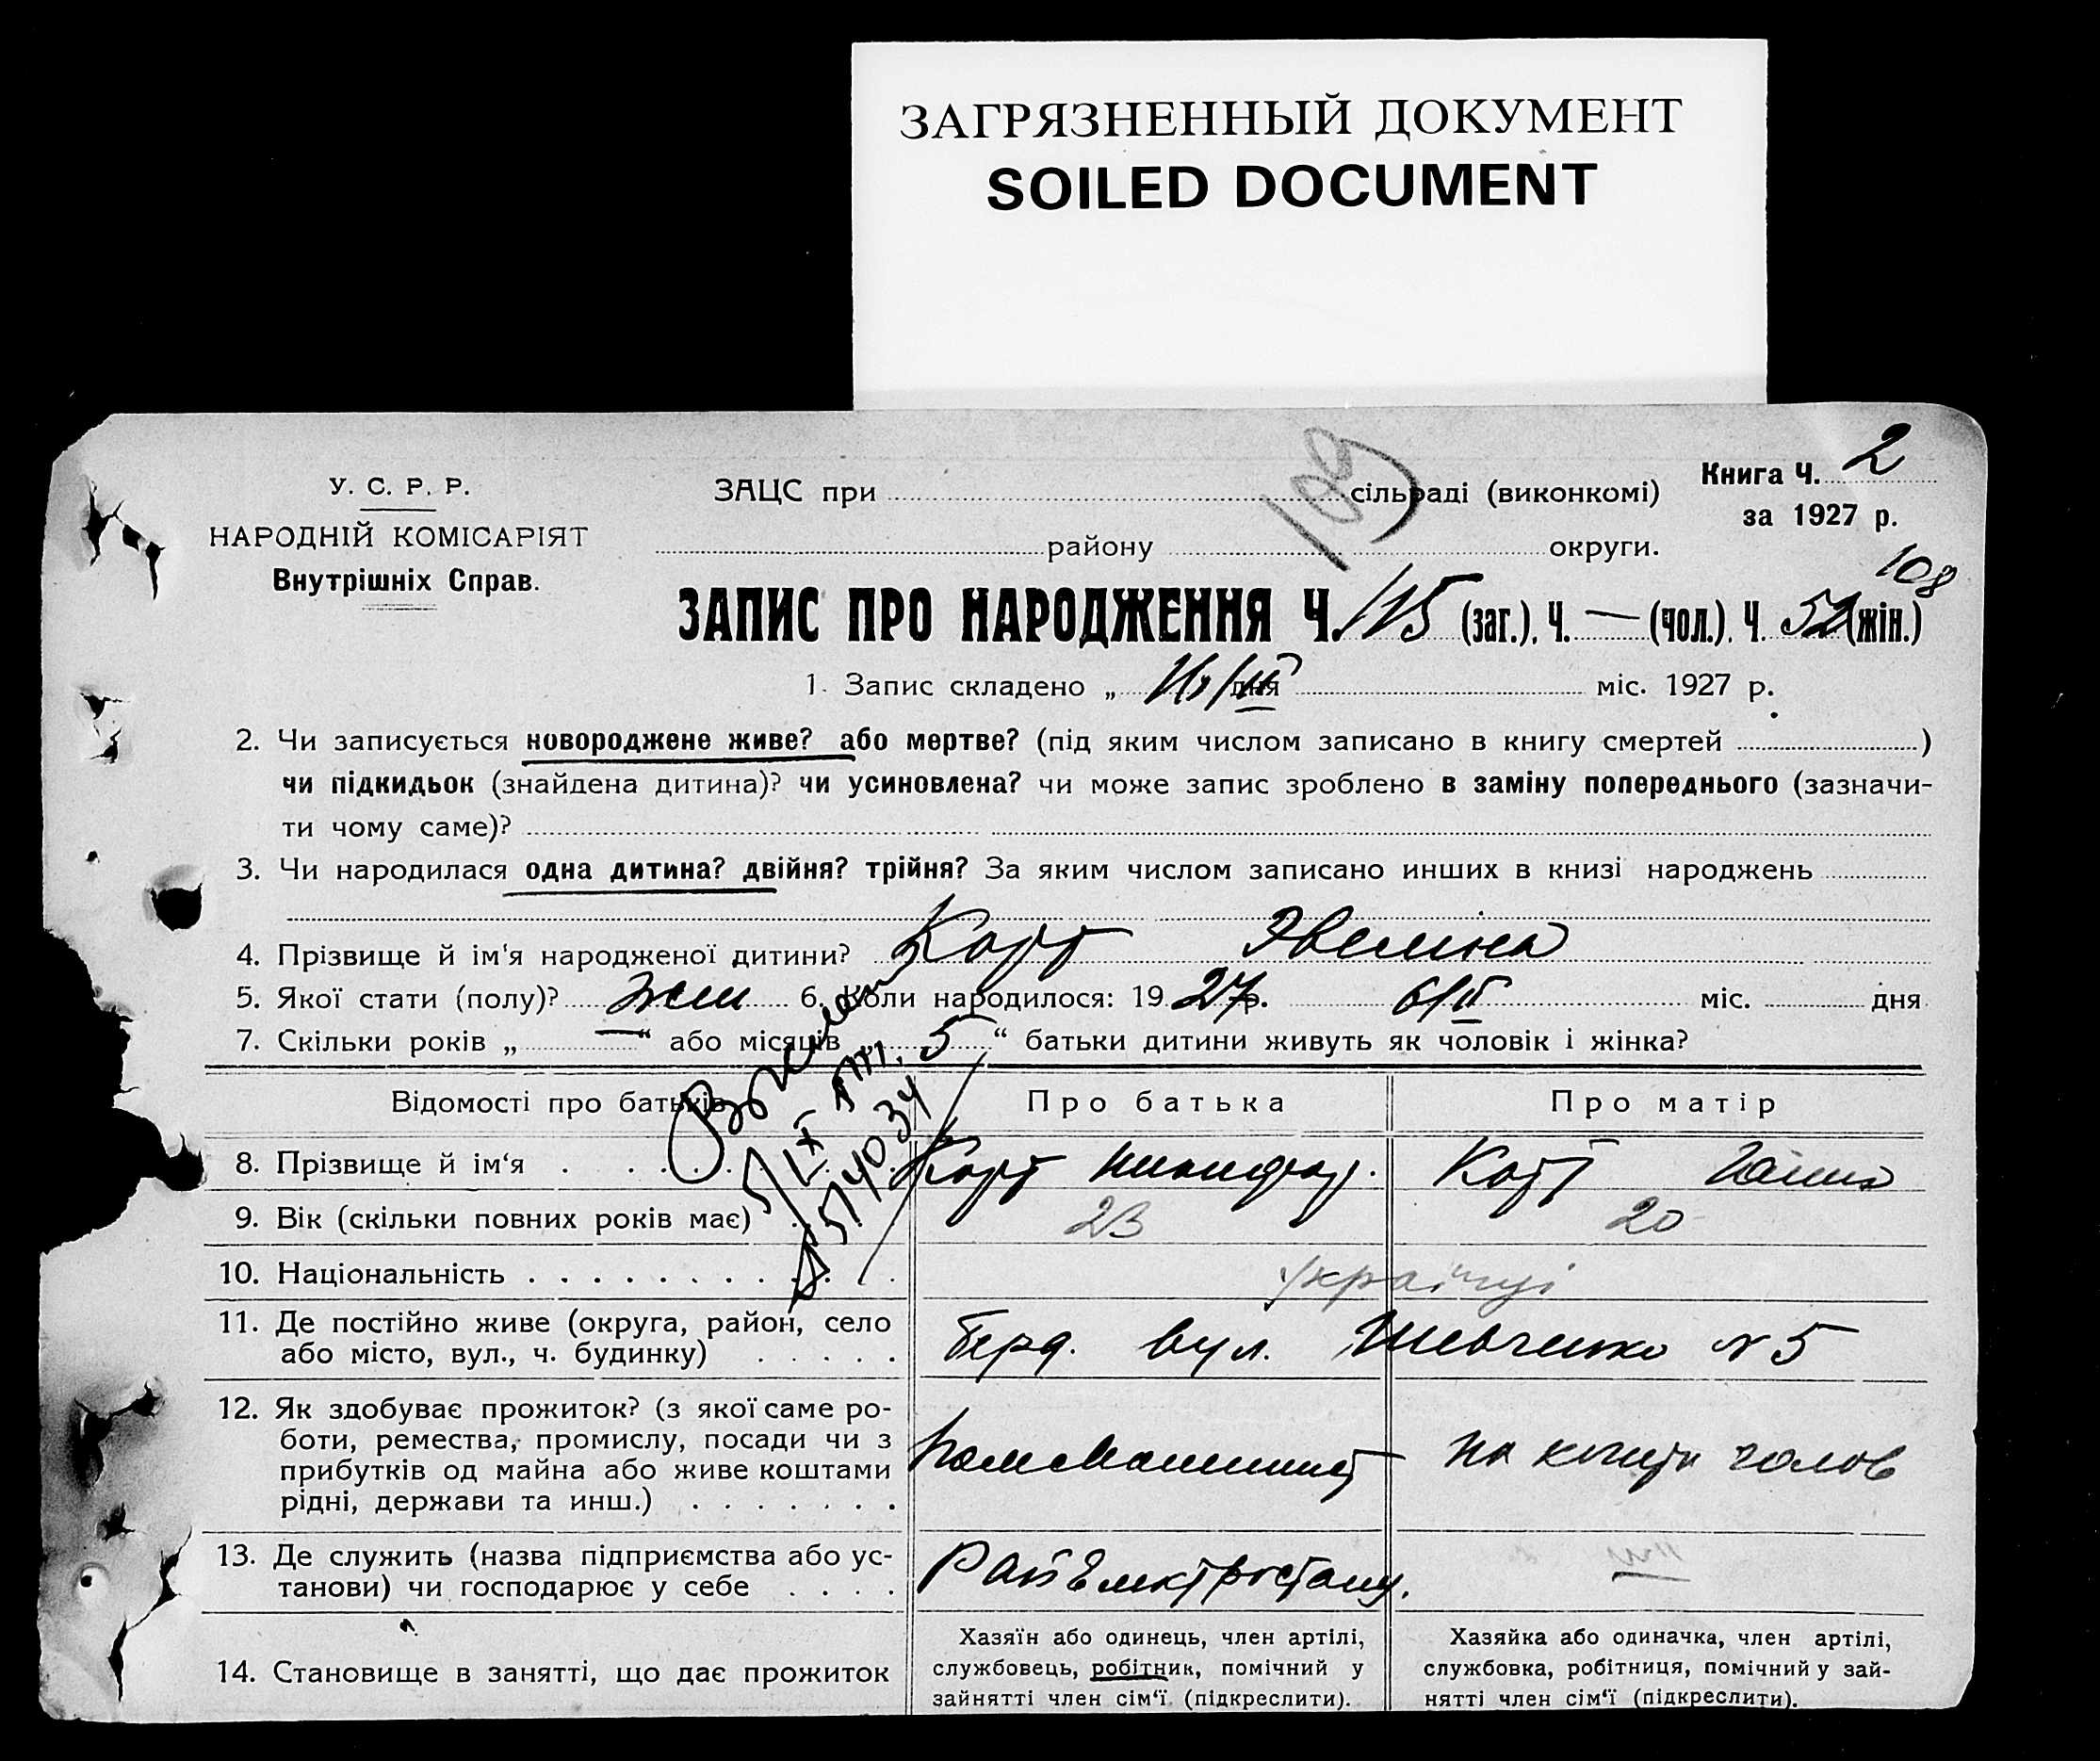 ЗАГРЯЗНЕННЫЙ ДОКУМЕНТ
SOILED DOCUMENT
109
Книга Ч. 2
за 1927 р.
108
У. С. Р. Р.
НАРОДНІЙ КОМІСАРІЯТ
Внутрішніх Справ.
ЗАЦС при сільраді (виконкомі)
району округи.
ЗАПИС ПРО НАРОДЖЕННЯ Ч. 115 (заг.), Ч. — (чол.), Ч. 52 (жін.)
1. Запис складено „ дня міс. 1927 р.
2. Чи записується новороджене живе? або мертве? (під яким числом записано в книгу смертей )
чи підкидьок (знайдена дитина)? чи усиновлена? чи може запис зроблено в заміну попереднього (зазначи-
ти чому саме)?
3. Чи народилася одна дитина? двійня? трійня? За яким числом записано инших в книзі народжень
4. Прізвище й ім'я народженої дитини? Корт Эвелина
5. Якої стати (полу)? жін 6. Коли народилося: 19 27 р. 6/II міс. дня
7. Скільки років „ — “ або місяців 5 “ батьки дитини живуть як чоловік і жінка?
Відомості про батьків Про батька Про матір
8. Прізвище й ім'я Корт Никифор. Корт Ганна
9. Вік (скільки повних років має) 23 20
10. Національність українці
11. Де постійно живе (округа, район, село
або місто, вул., ч. будинку) Берд. вул. Шевченко N 5
12. Як здобуває прожиток? (з якої саме ро-
боти, ремества, промислу, посади чи з
прибутків од майна або живе коштами
рідні, держави та инш.) поммашинист на кошти чолов
13. Де служить (назва підприємства або ус-
танови) чи господарює у себе Райелектростанц.
14. Становище в занятті, що дає прожиток
Хазяїн або одинець, член артілі,
службовець, робітник, помічний у
зайнятті член сім'ї (підкреслити).
Хазяйка або одиначка, член артілі,
службовка, робітниця, помічний у зай-
нятті член сім'ї (підкреслити).